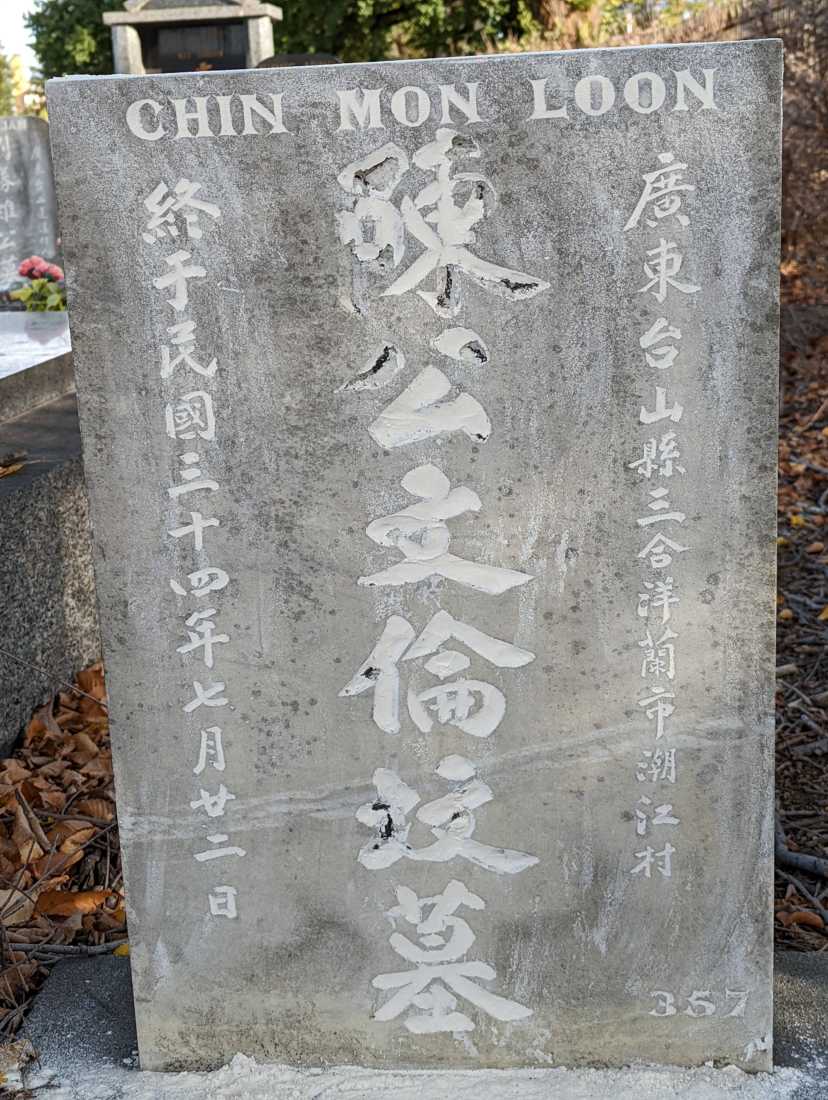 CHIN MON LOON
廣東台山縣三合洋蘭市潮江村
陳公文倫坟墓
終于民國三十四年七月廿二日
357